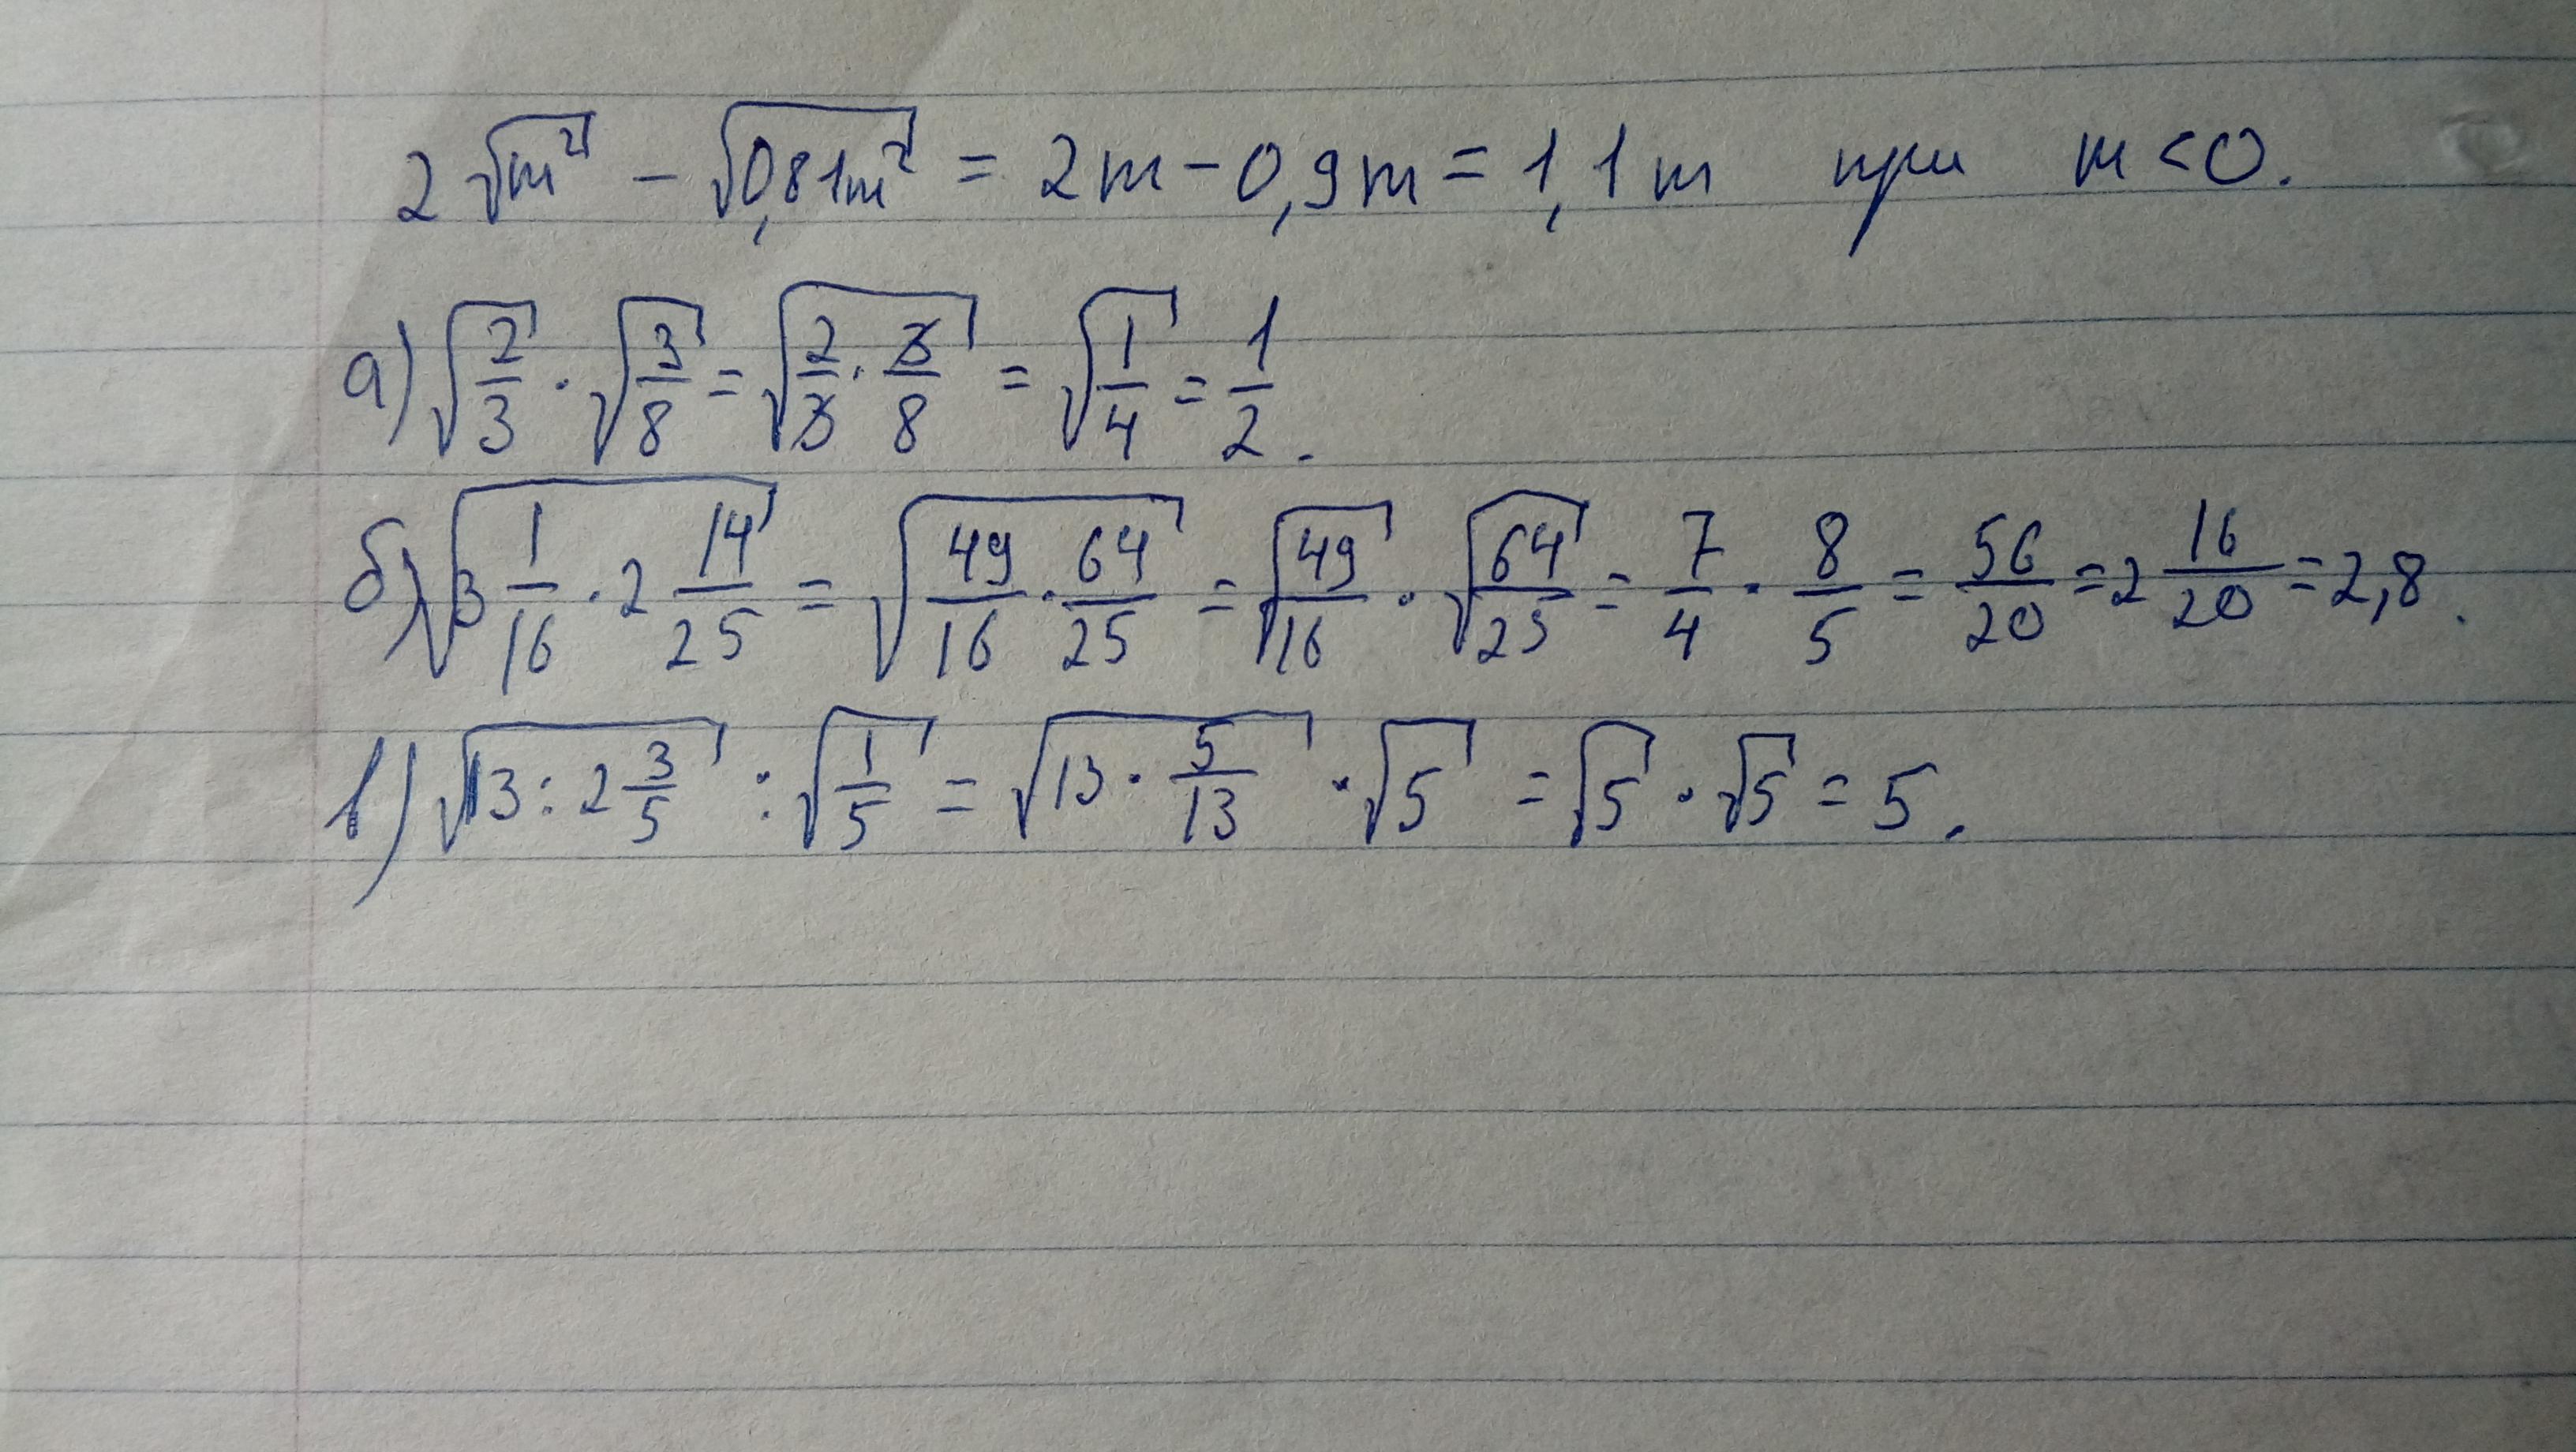 2√m² − √0,81m² = 2m − 0,9m = 1,1m при m < 0.
а) √(2/3) · √(3/8) = √(2/3 · 3/8) = √(1/4) = 1/2.
б) √(3 1/16 · 2 14/25) = √(49/16 · 64/25) = √(49/16) · √(64/25) = 7/4 · 8/5 = 56/20 = 2 16/20 = 2,8.
в) √(13 : 2 3/5) : √(1/5) = √(13 · 5/13) · √5 = √5 · √5 = 5.